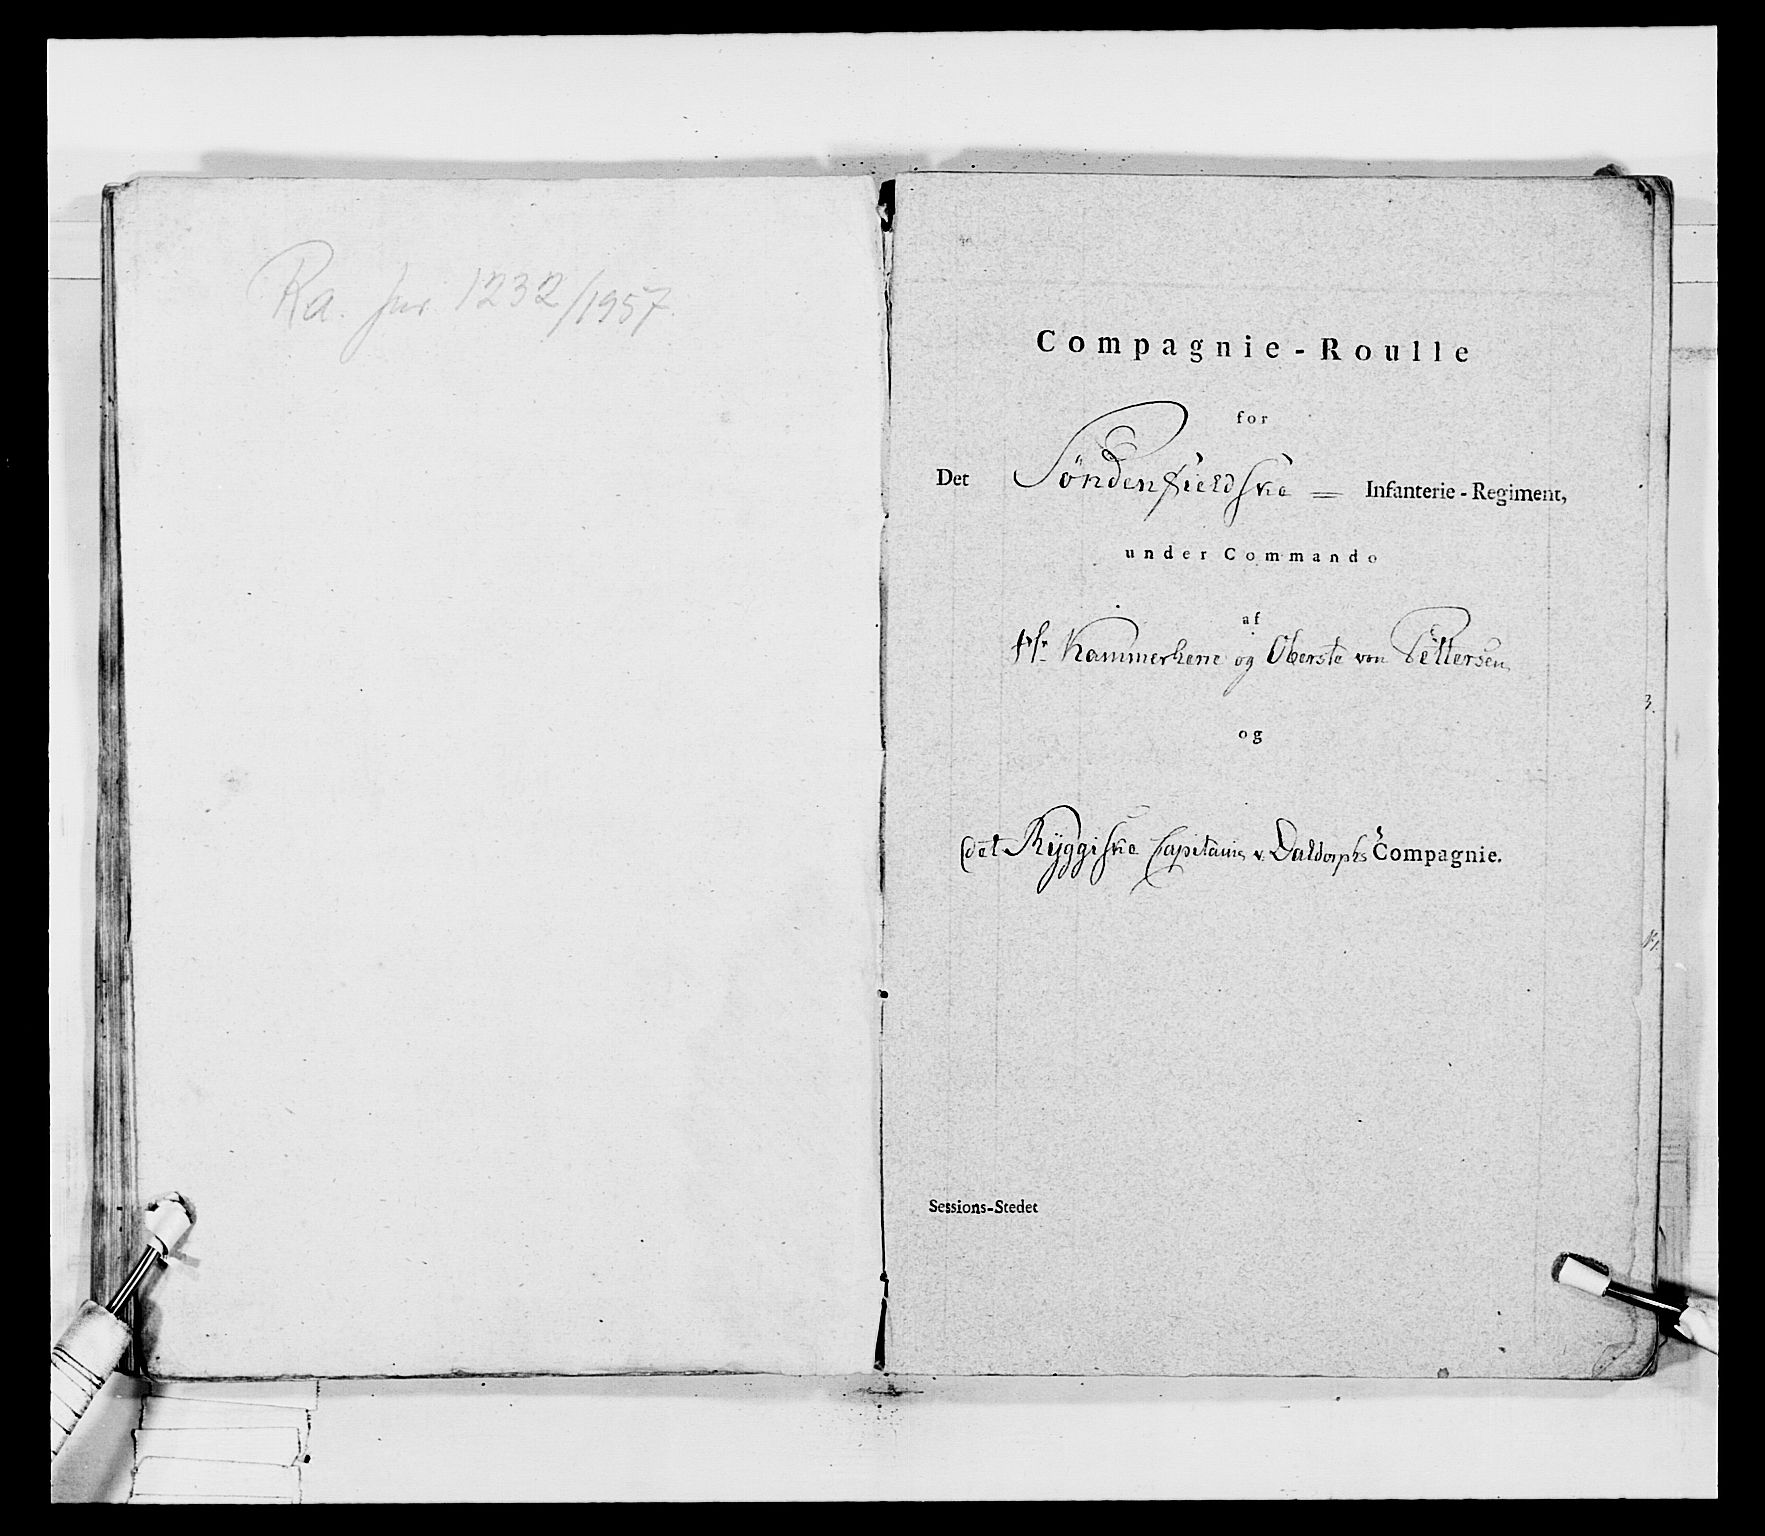 Ra. jnr. 1232/1957.
Compagnie-Roulle
for
Det Søndenfieldske = Infanterie-Regiment,
under Commando
af
Hr Kammerherre og Oberste von Pettersen
og
det Ryggiske Capitaine v. Daldorphs Compagnie.
3.
Sessions-Stedet